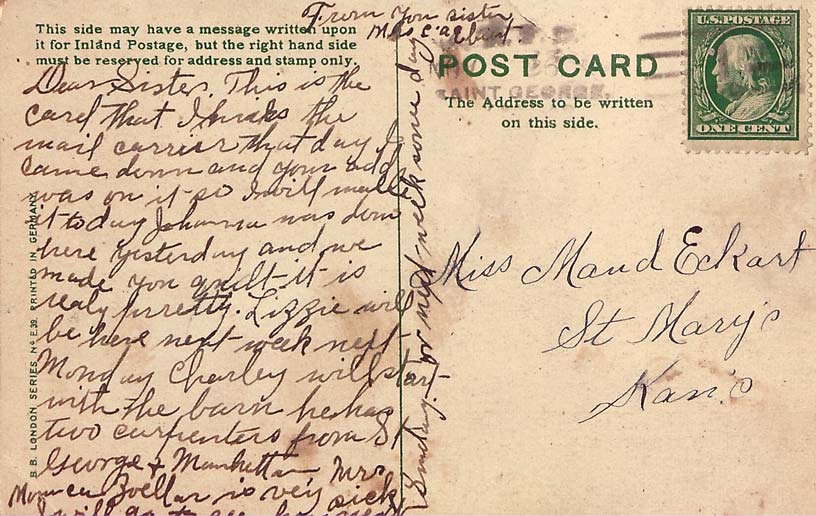 From You sister
Mrs C. a Ebert.
This side may have a message written upon
it for Inland Postage, but the right hand side
must be reserved for address and stamp only.
Dear Sister. This is the
card that I
mail carrier that day I
came down and your add
was on it so I will mail
it to day Johanna was down
here yesterday and we
made you quilt it is
realy prretty. Lizzie will
be here next week next
Monday Charley will start
with the barn he has
two carpenters from St
George & Manhattan Mrs
Monica Zoellar is very sick
I will go to see
Sunday. or next week some day
B.B. LONDON SERIES No E.39. PRINTED IN GERMANY.
POST CARD
SAINT GEORGE,
The Address to be written
on this side.
U.S. POSTAGE
ONE CENT
Miss Maud Eckart
St Mary's
Kan's